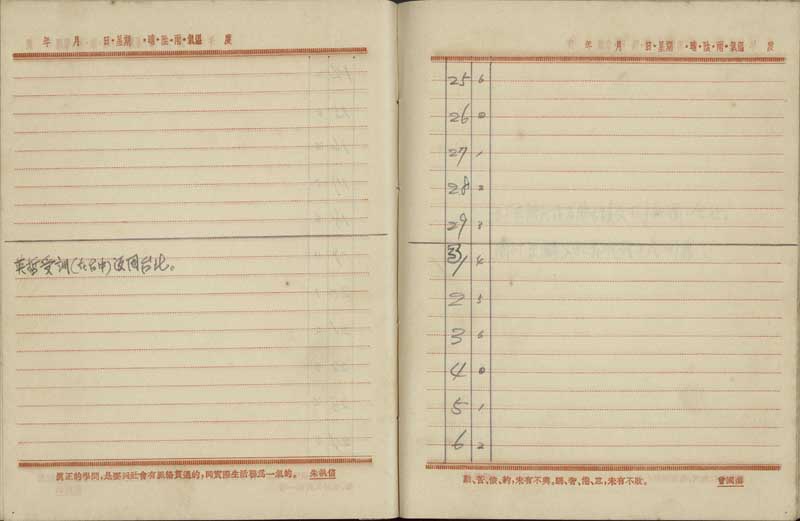 年 月 日•星期 •晴•陰•雨•氣溫 度
英哲受訓(在台中)返回台北。
眞正的學問,是要與社會有脈絡貫通的,同實際生活聯爲一氣的。 朱執信
年 月 日•星期 •晴•陰•雨•氣溫 度
25 6
26 0
27 1
28 2
29 3
3/1 4
2 5
3 6
4 0
5 1
6 2
勤、苦、儉、約,未有不興。驕、奢、倦、怠,未有不敗。 曾國藩